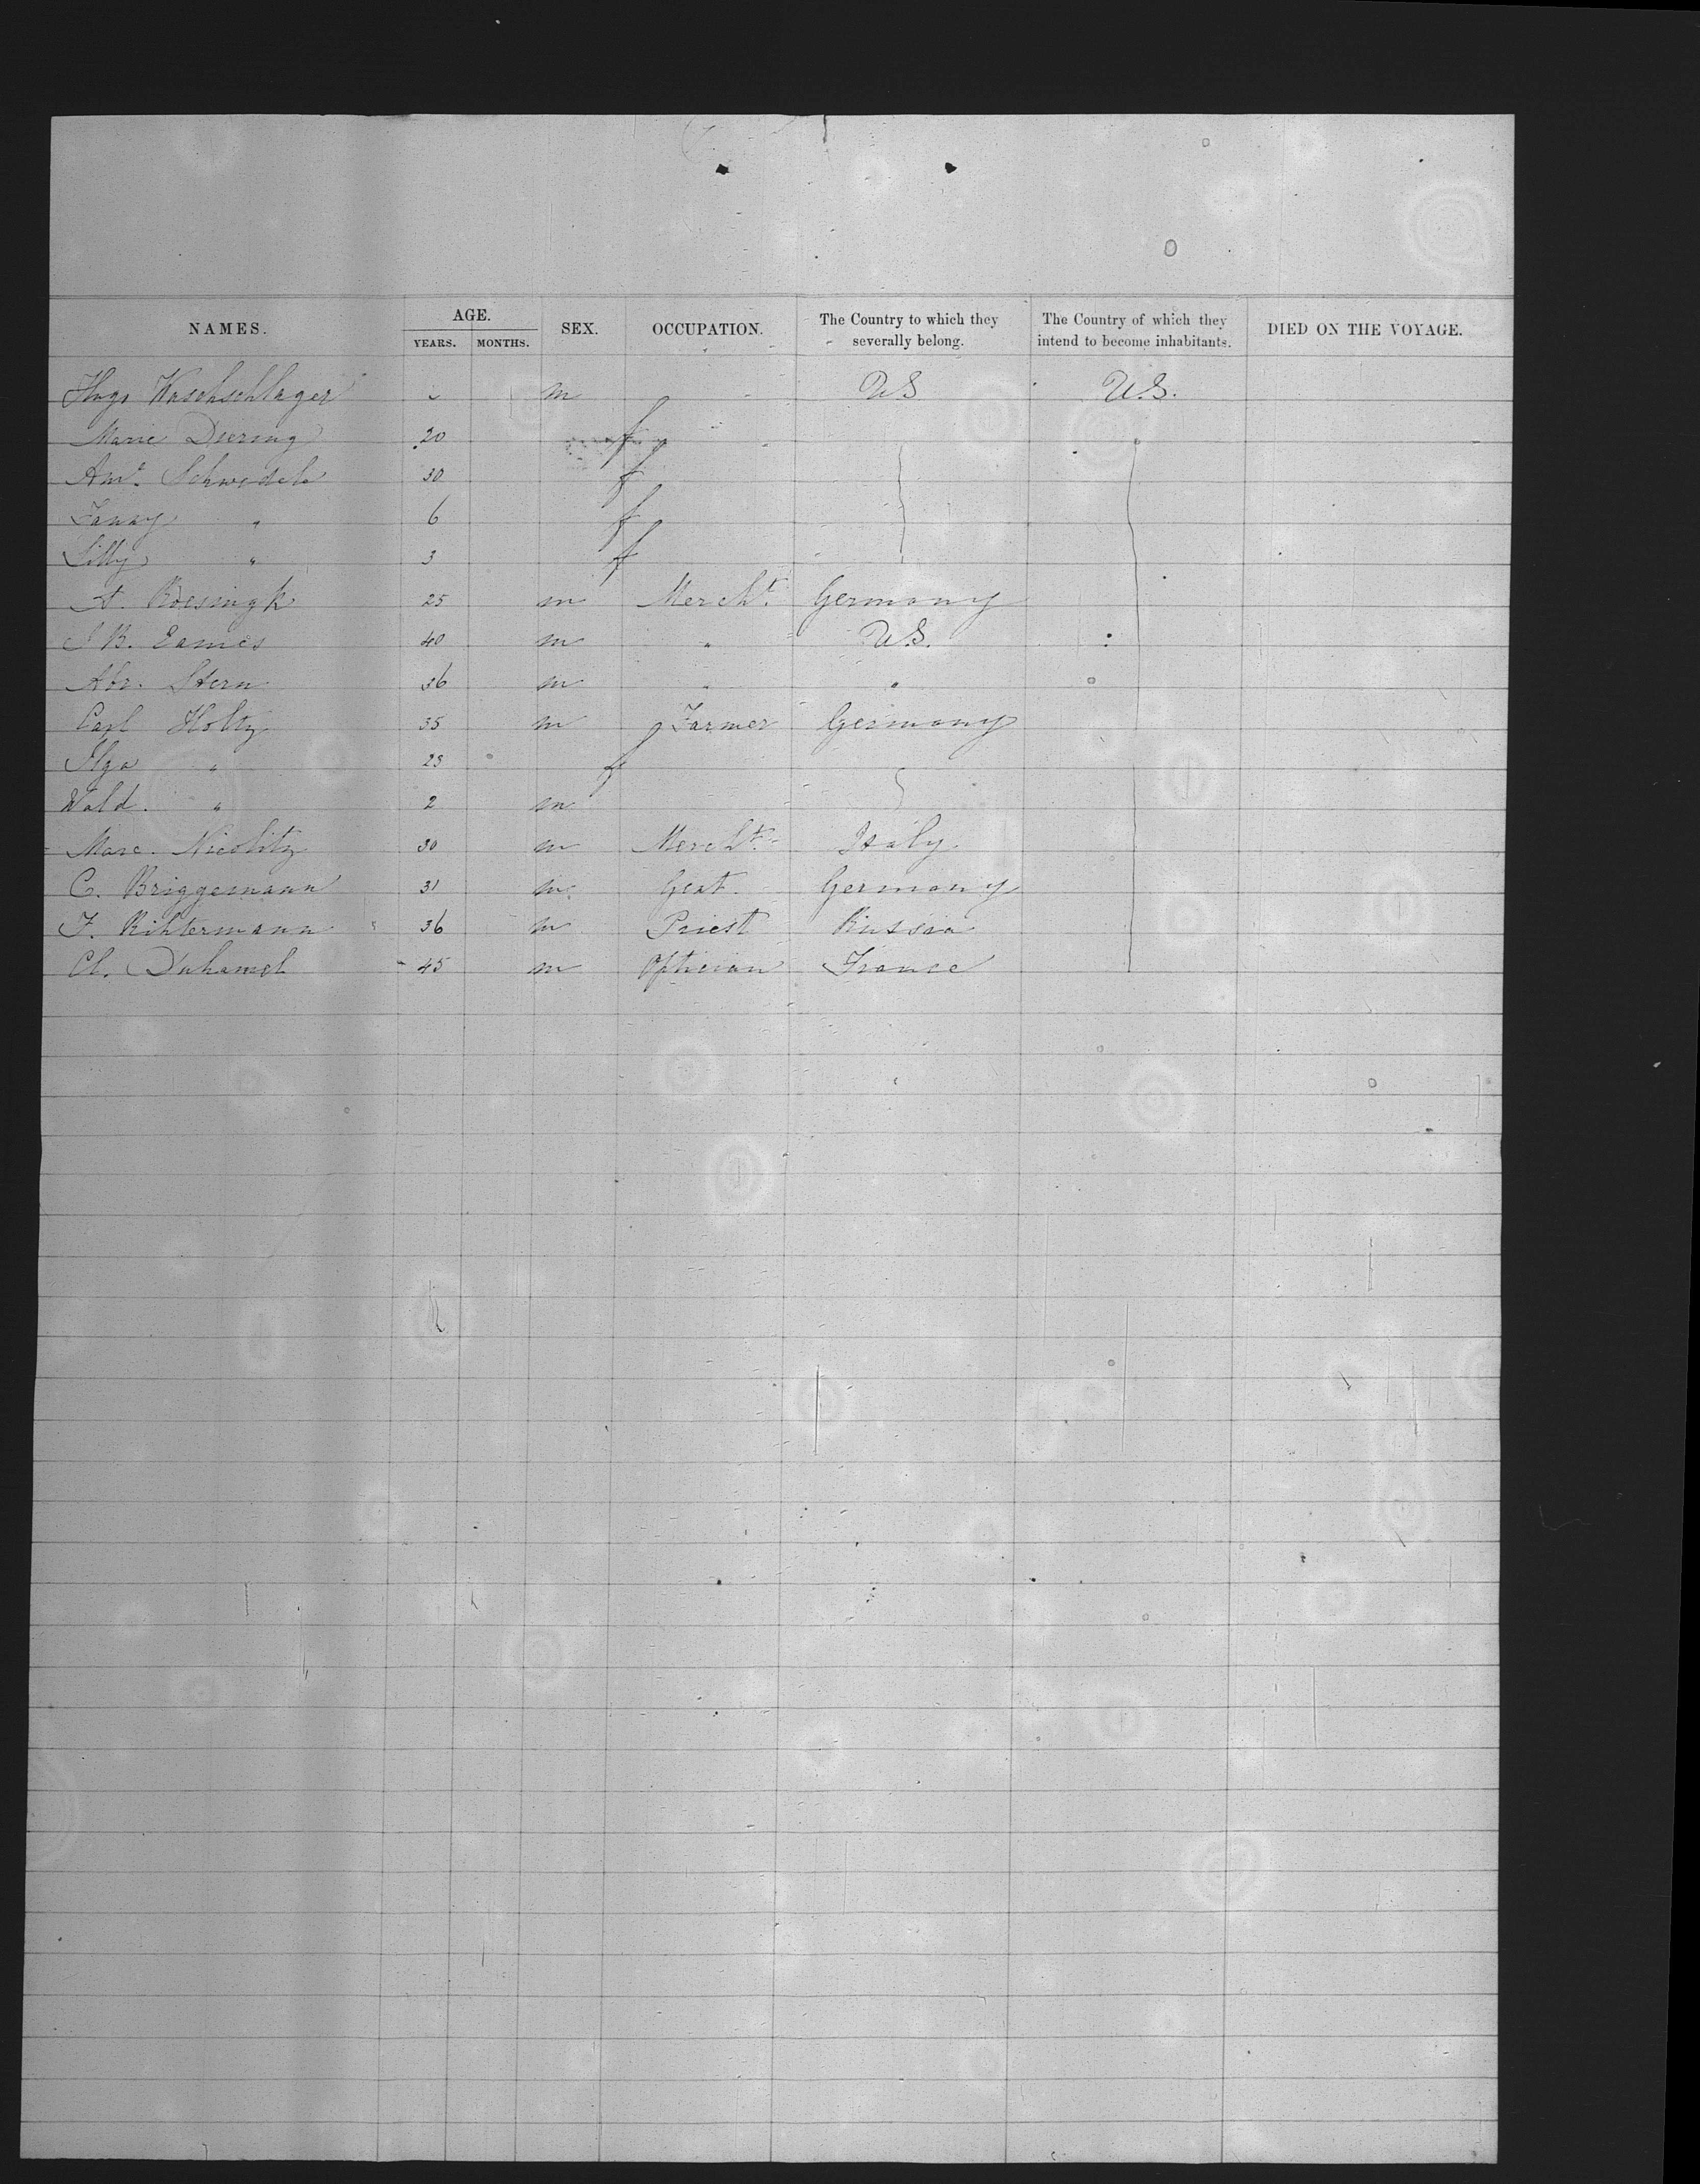 NAMES. AGE. YEARS. MONTHS. SEX. OCCUPATION. The Country to which they severally belong. The Country of which they intend to become inhabitants. DIED ON THE VOYAGE.
Hugo Waschschlager m US U.S.
Marie Diering 20 f
Am? Schwedele 30 f
Fanny " 6 f
Lilly " 3 f
A. Roesingk 25 m Mercht. Germany
J B. Eames 40 m " U.S.
Abr. Stern 36 m " "
Carl Holtz 35 m Farmer Germany
Ilga " 23 f
Wald. " 2 m
Marc. Nicolitz 30 m Mercht. Italy
C. Briggemann 31 m Gent. Germany
F. Rihtermann 36 m Priest Russia
Cl. Duhamel 45 m Optician France